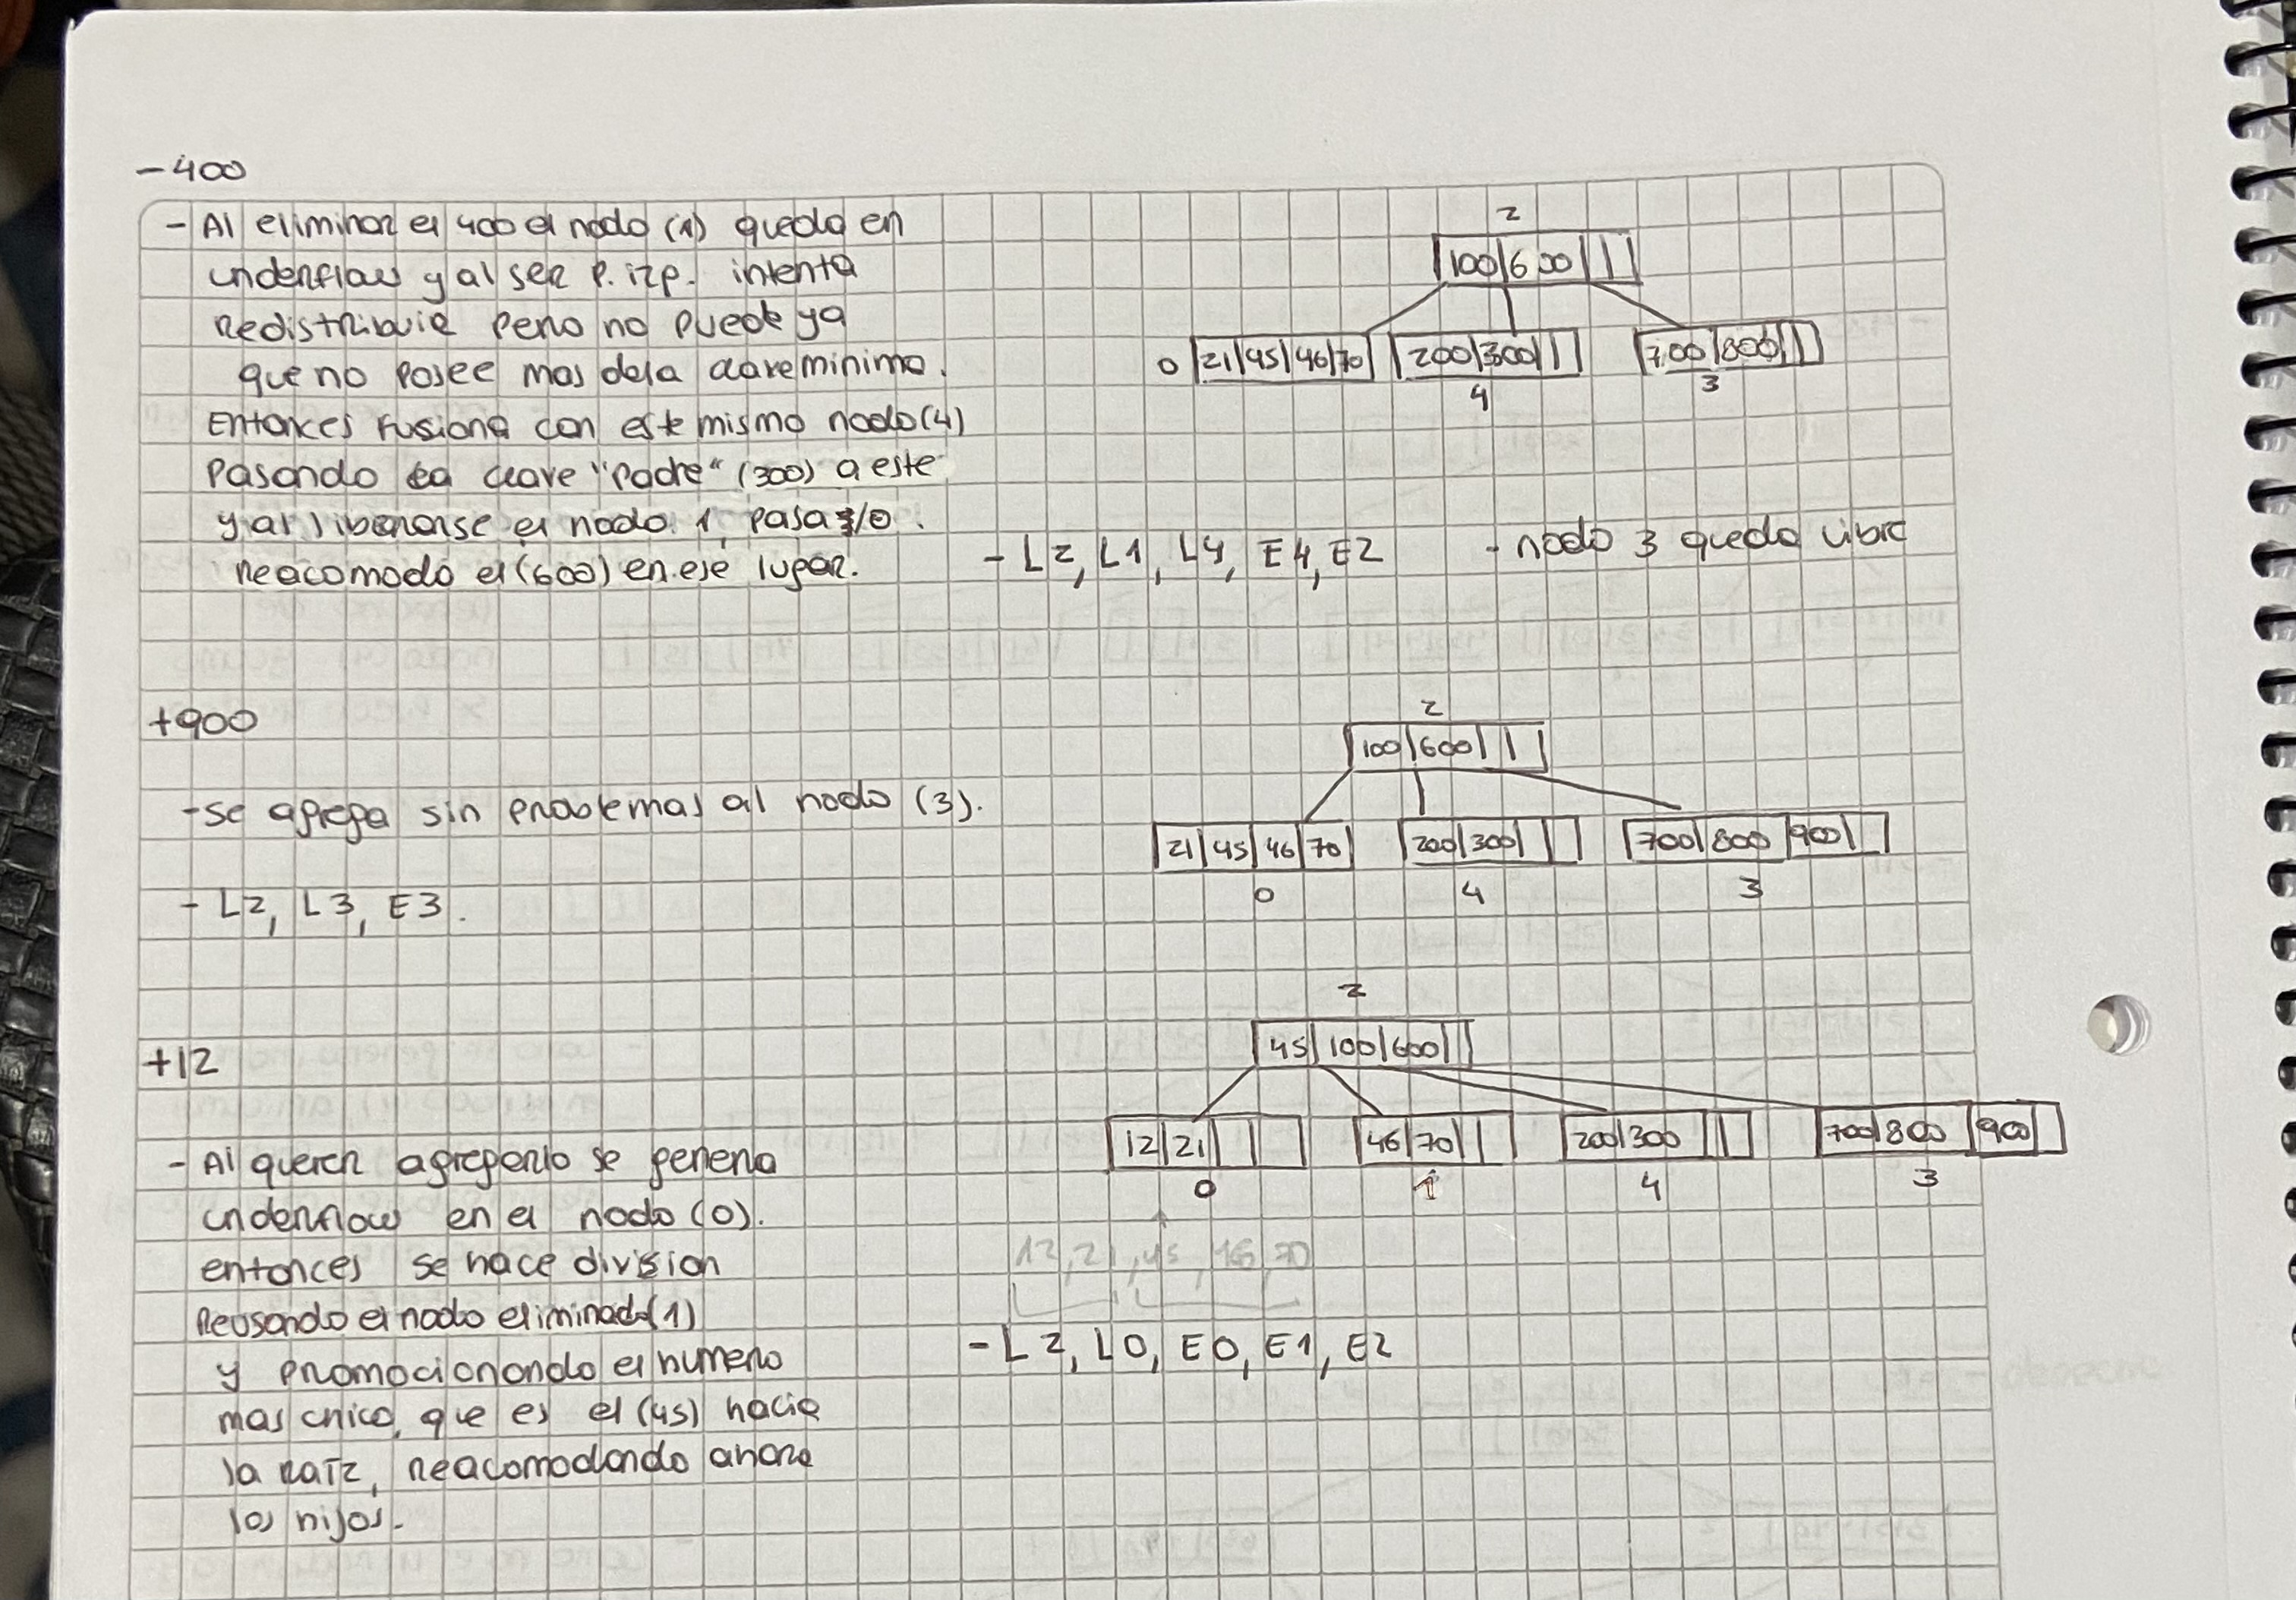 -400
- Al eliminar el 400 el nodo (1) queda en
underflow y al ser P. izp. intenta
Redistribuir pero no puede ya
que no posee mas de la clave minima.
Entonces fusiona con este mismo nodo(4)
Pasando la clave "padre" (300) a este
y al liberarse el nodo 1, pasa
reacomodo el (600) en ese lugar.
2
100|600
0 21|45|46|70 200|300 700|800
4 3
- L2, L1, L4, E4, E2 - nodo 3 queda libre
+900
-Se agrega sin problemas al nodo (3).
- L2, L3, E3.
2
100|600
21|45|46|70 200|300 700|800|900
0 4 3
+12
- Al querer agregarlo se genera
underflow en el nodo (0).
entonces se hace division
Reusando el nodo eliminado(1)
y promocionando el numero
mas chico, que es el (45) hacia
la raiz, reacomodando ahora
los hijos.
2
45|100|600
12|21 46|70 200|300 700|800|900
0 1 4 3
12, 21, 45, 46, 70
- L2, L0, E0, E1, E2